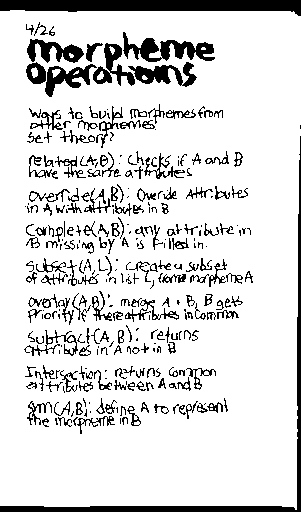 4/26
morpheme
operations
Ways to build morphemes from
other morphemes!
Set theory?
related(A,B): Checks if A and B
have the same attributes
override(A,B): Override Attributes
in A with attributes in B
Complete(A,B): any attribute in
B missing by A is filled in.
subset(A,L): create a subset
of attributes in list L, from morpheme A
overlay(A,B): merge A + B, B gets
priority if there attributes in common
subtract(A,B): returns
attributes in A not in B
Intersection: returns common
attributes between A and B
sym(A,B): define A to represent
the morpheme in B